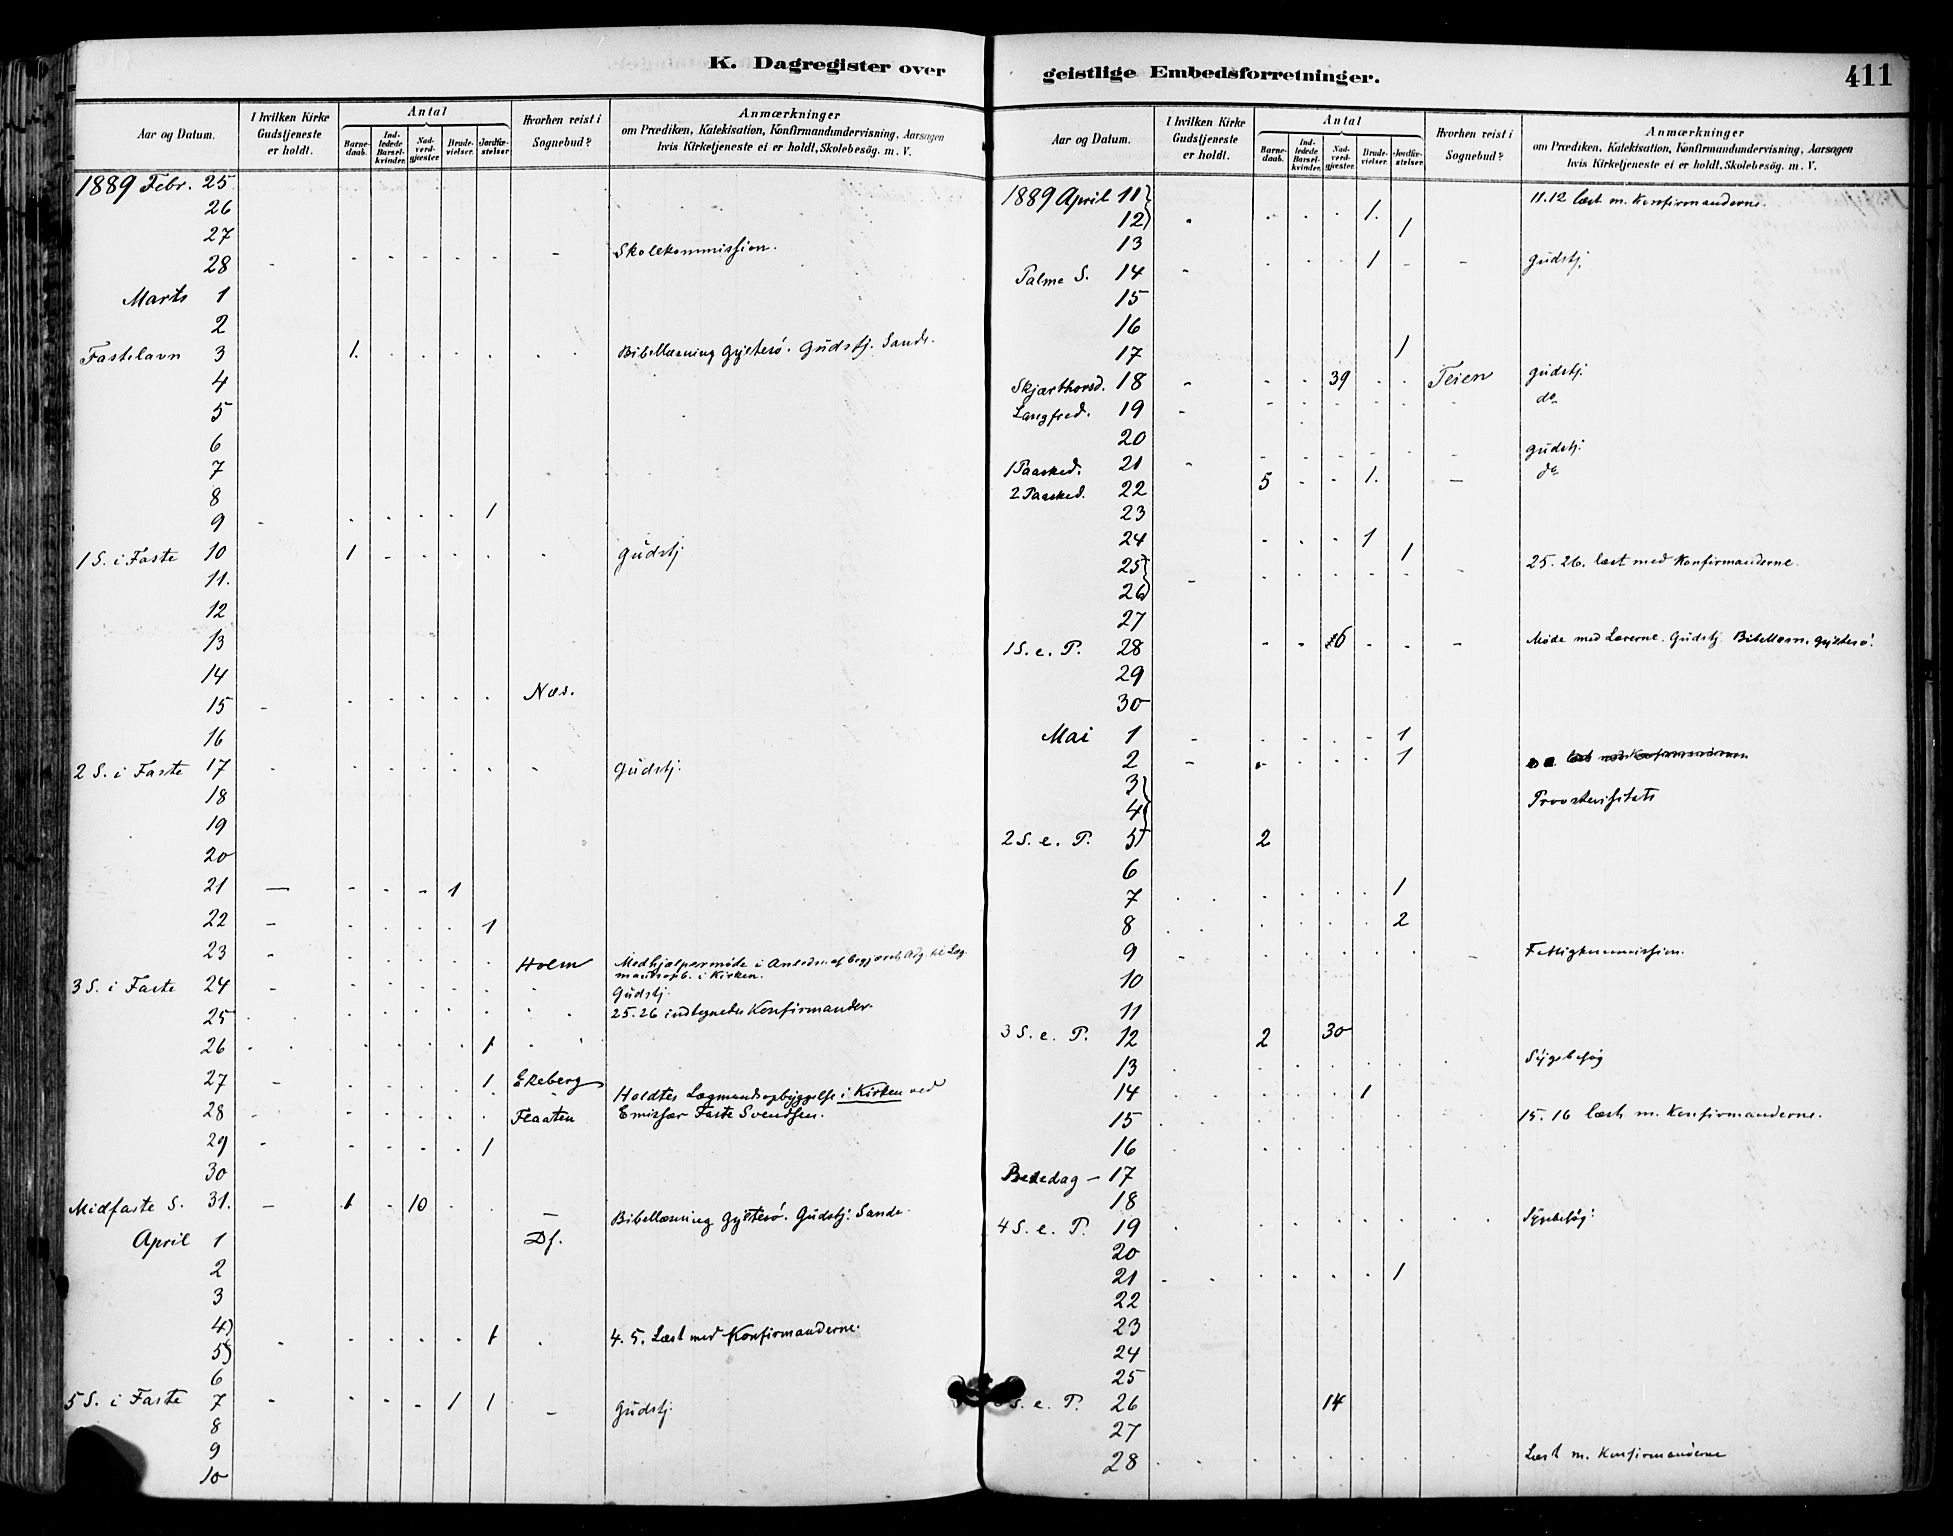 K. Dagregister over
Aar og Datum.
I hvilken Kirke Gudstjeneste er holdt.
Antal
Barne-daab.
Ind-ledede Barsel-kvinder.
Nad-verd-gjester.
Brude-vielser.
Jordfæ-stelser.
Hvorhen reist i Sognebud?
Anmærkninger
om Prædiken, Katekisation, Konfirmandundervisning, Aarsagen
hvis Kirketjeneste ei er holdt, Skolebesög. m. V.
1889 Febr. 25
26
27
28 Skolekommission.
Marts 1
2
Fastelavn 3 1. Bibellæsning Gyltesø. Gudstj. Sande.
4
5
6
7
8
9 1
1 S. i Faste 10 1 Gudstj
11.
12
13
14
15 Næs.
16
2 S. i Faste 17 Gudstj.
18
19
20
21 1
22 1
23 Holm Medhjælpermøde i Anledn. af begjæret Adg. til Læg-
mandsopb. i Kirken.
3 S. i Faste 24 Gudstj.
25 25.26 indtegnedes Konfirmander.
26 1
27 1 Ekeberg
28 Flaaten Holdtes Lægmandsopbyggelse i Kirken ved
Emissær Faste Svendsen.
29 1
30
Midfaste S. 31. 1 10 Bibellæsning Gyltesø. Gudstj. Sande.
April 1 Df.
2
3
4
5 1 4. 5. Læst med Konfirmanderne.
6
5 S. i Faste 7 1 1 Gudstj
8
9
10
geistlige Embedsforretninger.
411
Aar og Datum.
I hvilken Kirke Gudstjeneste er holdt.
Antal
Barne-daab.
Ind-ledede Barsel-kvinder.
Nad-verd-gjester.
Brude-vielser.
Jordfæ-stelser.
Hvorhen reist i Sognebud?
Anmærkninger
om Prædiken, Katekisation, Konfirmandundervisning, Aarsagen
hvis Kirketjeneste ei er holdt, Skolebesög. m. V.
1889 April 11 11.12 læst m. Konfirmanderne.
12 1.
13 1
Palme S. 14 1 Gudstj.
15
16
17 1
Skjærthorsd. 18 39 Teien Gudstj.
Langfred. 19 do
20
1 Paasked. 21 Gudstj.
2 Paasked. 22 5 1. do
23
24 1
25 1 25. 26. læst med Konfirmanderne.
26
27
1 S. e. P. 28 16 Møde med Lærerne. Gudstj. Bibellæsn. Gyltesø.
29
30
Mai 1 1
2 1
3 Proostevisitats
4
2 S. e. P. 5 2
6
7 1
8 2
9 Fattigkommission.
10
11
3 S. e. P. 12 2 30
13 Sygebesøg
14 1
15 15. 16 læst m. Konfirmanderne.
16
Bededag - 17
18
4 S. e. P. 19 Sygebesøg.
20
21 1
22
23
24
25
S. e. P. 26 14
27
28 Læst m. Konfirmanderne